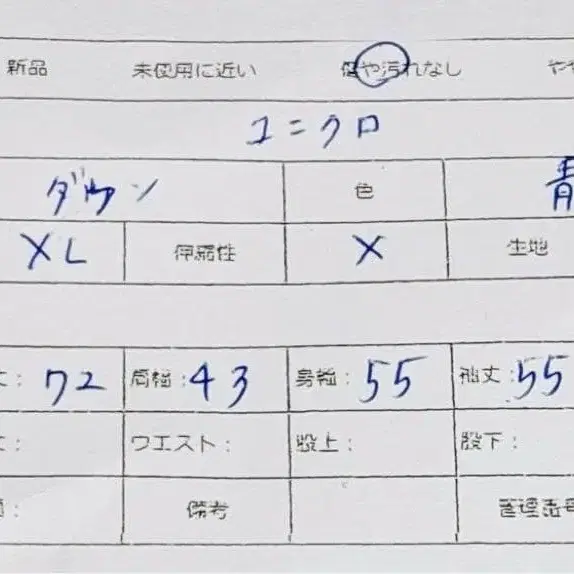 新品 未使用に近い 傷や汚れなし やや
ユニクロ
ダウン 色 青
XL 伸縮性 X 生地
丈: 72 肩幅: 43 身幅: 55 袖丈: 55
丈: ウエスト: 股上: 股下:
: 備考 管理番号